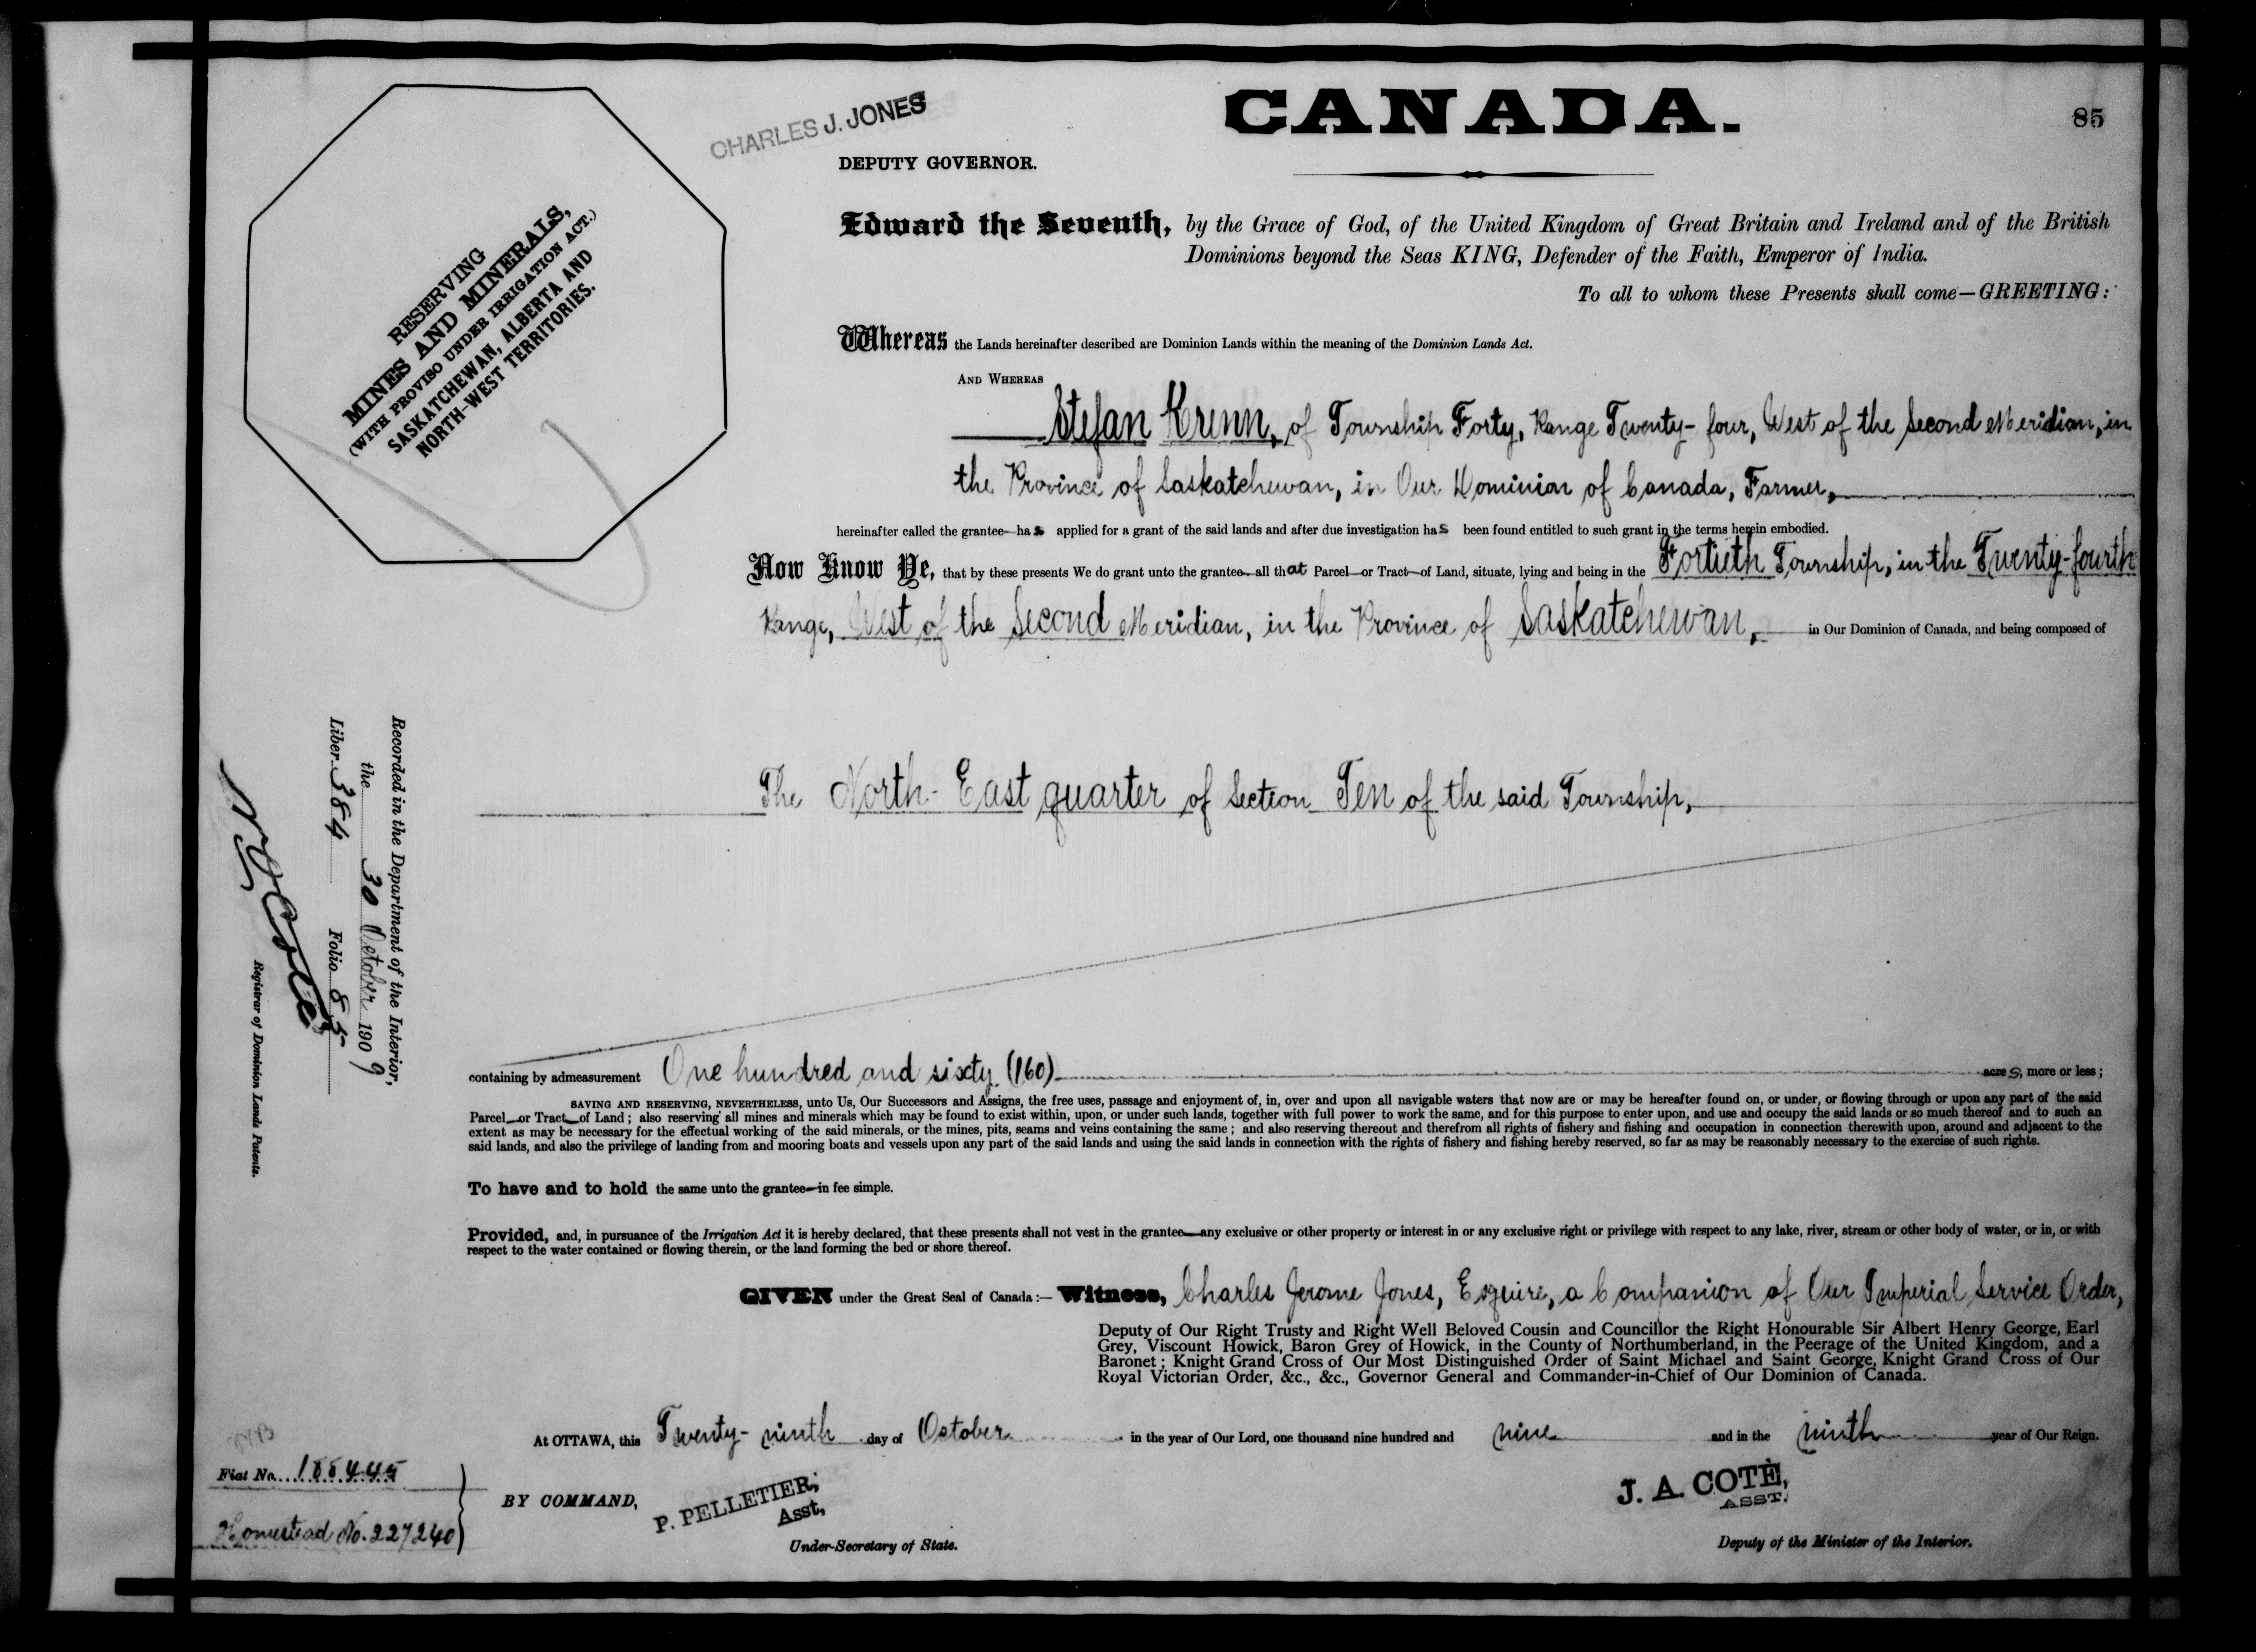 CANADA.
85
CHARLES J. JONES
DEPUTY GOVERNOR.
RESERVING
MINES AND MINERALS,
(WITH PROVISO UNDER IRRIGATION ACT.)
SASKATCHEWAN, ALBERTA AND
NORTH-WEST TERRITORIES.
Edward the Seventh, by the Grace of God, of the United Kingdom of Great Britain and Ireland and of the British
Dominions beyond the Seas KING, Defender of the Faith, Emperor of India.
To all to whom these Presents shall come—GREETING:
Whereas the Lands hereinafter described are Dominion Lands within the meaning of the Dominion Lands Act.
AND WHEREAS
Stefan Krenn, of Township Forty, Range Twenty-four, West of the Second Meridian, in
the Province of Saskatchewan, in Our Dominion of Canada, Farmer,
hereinafter called the grantee has applied for a grant of the said lands and after due investigation has been found entitled to such grant in the terms herein embodied.
Now Know Ye, that by these presents We do grant unto the grantee all that Parcel or Tract of Land, situate, lying and being in the Fortieth Township, in the Twenty-fourth
Range, West of the Second Meridian, in the Province of Saskatchewan, in Our Dominion of Canada, and being composed of
The North-East quarter of Section Ten of the said Township,
Recorded in the Department of the Interior,
the 30 October 1909
Liber 384 Folio 85
N O Coté
Registrar of Dominion Lands Patents.
containing by admeasurement One hundred and sixty (160) acres, more or less;
SAVING AND RESERVING, NEVERTHELESS, unto Us, Our Successors and Assigns, the free uses, passage and enjoyment of, in, over and upon all navigable waters that now are or may be hereafter found on, or under, or flowing through or upon any part of the said
Parcel or Tract of Land; also reserving all mines and minerals which may be found to exist within, upon, or under such lands, together with full power to work the same, and for this purpose to enter upon, and use and occupy the said lands or so much thereof and to such an
extent as may be necessary for the effectual working of the said minerals, or the mines, pits, seams and veins containing the same; and also reserving thereout and therefrom all rights of fishery and fishing and occupation in connection therewith upon, around and adjacent to the
said lands, and also the privilege of landing from and mooring boats and vessels upon any part of the said lands and using the said lands in connection with the rights of fishery and fishing hereby reserved, so far as may be reasonably necessary to the exercise of such rights.
To have and to hold the same unto the grantee in fee simple.
Provided, and, in pursuance of the Irrigation Act it is hereby declared, that these presents shall not vest in the grantee any exclusive or other property or interest in or any exclusive right or privilege with respect to any lake, river, stream or other body of water, or in, or with
respect to the water contained or flowing therein, or the land forming the bed or shore thereof.
GIVEN under the Great Seal of Canada:— Witness, Charles Jerome Jones, Esquire, a Companion of Our Imperial Service Order,
Deputy of Our Right Trusty and Right Well Beloved Cousin and Councillor the Right Honourable Sir Albert Henry George, Earl
Grey, Viscount Howick, Baron Grey of Howick, in the County of Northumberland, in the Peerage of the United Kingdom, and a
Baronet; Knight Grand Cross of Our Most Distinguished Order of Saint Michael and Saint George, Knight Grand Cross of Our
Royal Victorian Order, &c., &c., Governor General and Commander-in-Chief of Our Dominion of Canada.
At OTTAWA, this Twenty-ninth day of October in the year of Our Lord, one thousand nine hundred and nine and in the ninth year of Our Reign.
Fiat No. 188445
Homestead No. 227240
BY COMMAND,
P. PELLETIER,
Asst,
Under-Secretary of State.
J. A. COTÉ,
ASST.
Deputy of the Minister of the Interior.